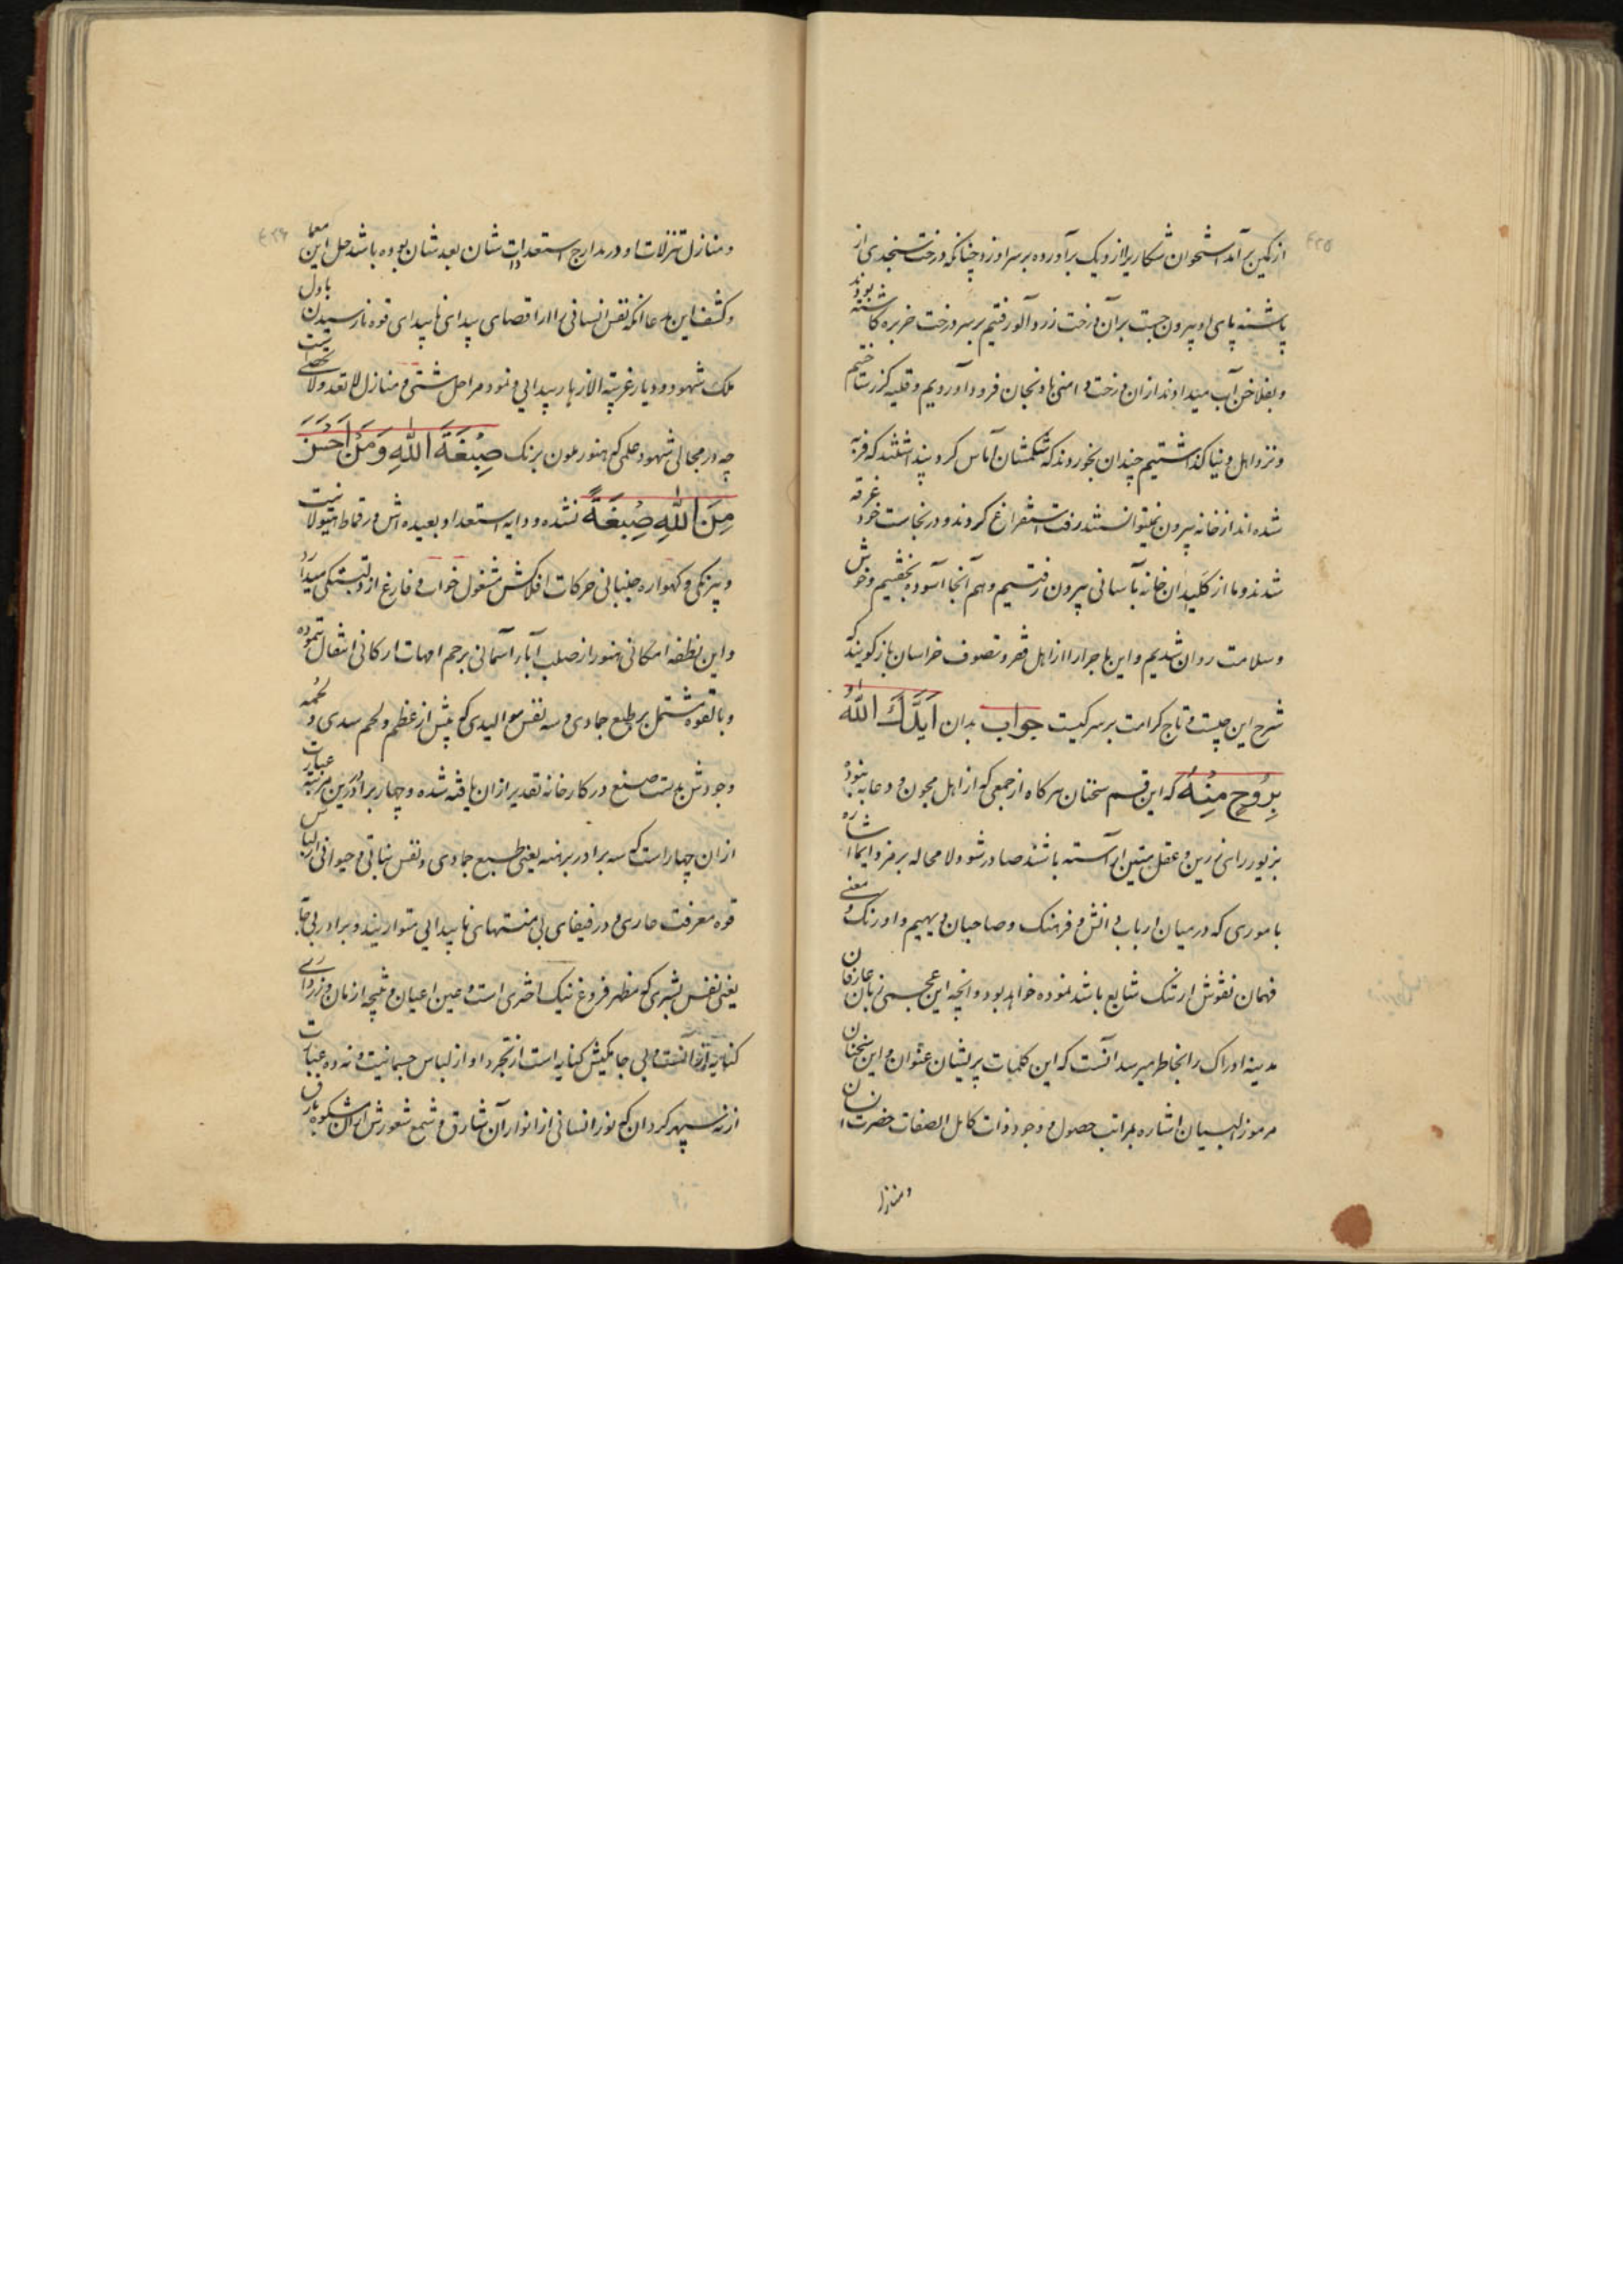 ۴۲۵
از کمین برآمد استخوان شکاری را از دیک برآورده بر سر او زد چنانکه درخت سنجدی از
پاشنه پای او بیرون جست بر آن درخت زردآلو رفتیم بر سر درخت خربزه کاشته بودند
و بفلاخن آب میدادند از آن درخت دامنی بادنجان فرود آوردیم و قلیه کزر ساختیم
و نزد اهل دنیا گذاشتیم چندان بخوردند که شکمشان آماس کرد پنداشتند که فربه
شده اند از خانه بیرون نمیتوانستند رفت استفراغ کردند و در نجاست خود غرقه
شدند و ما از کلیدان خانه بآسانی بیرون رفتیم و هم آنجا آسوده بخفتیم و خوش
و سلامت روان شدیم و این ماجرا را از اهل فقر و تصوف خراسان باز گویند که
شرح این چیست و تاج کرامت بر سر کیست جواب بدان اَیَّدَكَ اللّٰهُ
بِرُوحٍ مِنْهُ که این قسم سخنان هرگاه از جمعی که از اهل مجون و دعابه نبوده
بزیور رای زرین و عقل متین آراسته باشند صادر شود لا محاله بر مز و ایما اشاره
باموری که در میان ارباب دانش و فرهنک و صاحبان دیهیم و اورنک و معنی
فهمان نقوش ارتنک شایع باشد نموده خواهد بود و آنچه این عجمی زبان عارفان
مدینه ادراک را بخاطر میرسد آنست که این کلمات پریشان عنوان و این سخنان
مرموز البیان اشاره بمراتب حصول و وجود ذات کامل الصفات حضرت انسان
و منازل
۴۲۶
و منازل تنزلات او در مدارج استعدادات شان بعد شان بوده باشد حل این معما
و کشف این مدعا آنکه نفس انسانی را از اقصای بیدای ناپیدای قوه تا رسیدن باول
ملک شهود و دیار غربة الازهار پیدایی و نمود مراحل شتی و منازل لا تعد و لا تحصی است
چه در مجالی شهود علمی که هنوز ملون برنک صِبْغَةَ اللّٰهِ وَمَنْ اَحْسَنُ
مِنَ اللّٰهِ صِبْغَةً نشده و دایه استعداد بعیده اش در قماط هیولانیت
و بیرنکی و کهواره جنبانی حرکات افلاکش مشغول خواب و فارغ از دلبستکی میدارد
و این نطفه امکانی هنوز از صلب آباء آسمانی برحم امهات ارکانی انتقال ننموده
و بالقوه مشتمل بر طبع جمادی و سه نفس موالیدی که پیش از عظم و لحم سدی و لحمه
وجودش بدست صنع در کارخانه تقدیر از آن بافته شده و چهار برادر درین مرتبه عبارت
از آن چهار است که سه برادر برهنه یعنی طبیع جمادی و نفس نباتی و حیوانی از لباس
قوه معرفت عاری و در فیفای بی منتهای ناپیدایی متواریند و برادر بی جا
یعنی نفس بشری که مظهر فروغ نیک اختری است و عین اعیان و نتیجه ازمان و زر داری
کنایه از آنست و بی جامکیش کنایه است از تجرد او از لباس جسمانیت و نه ده عبارت
از نه سپهر کردان که نور انسانی از انوار آن شارق و شمع شعورش از آن مشکوة بارق